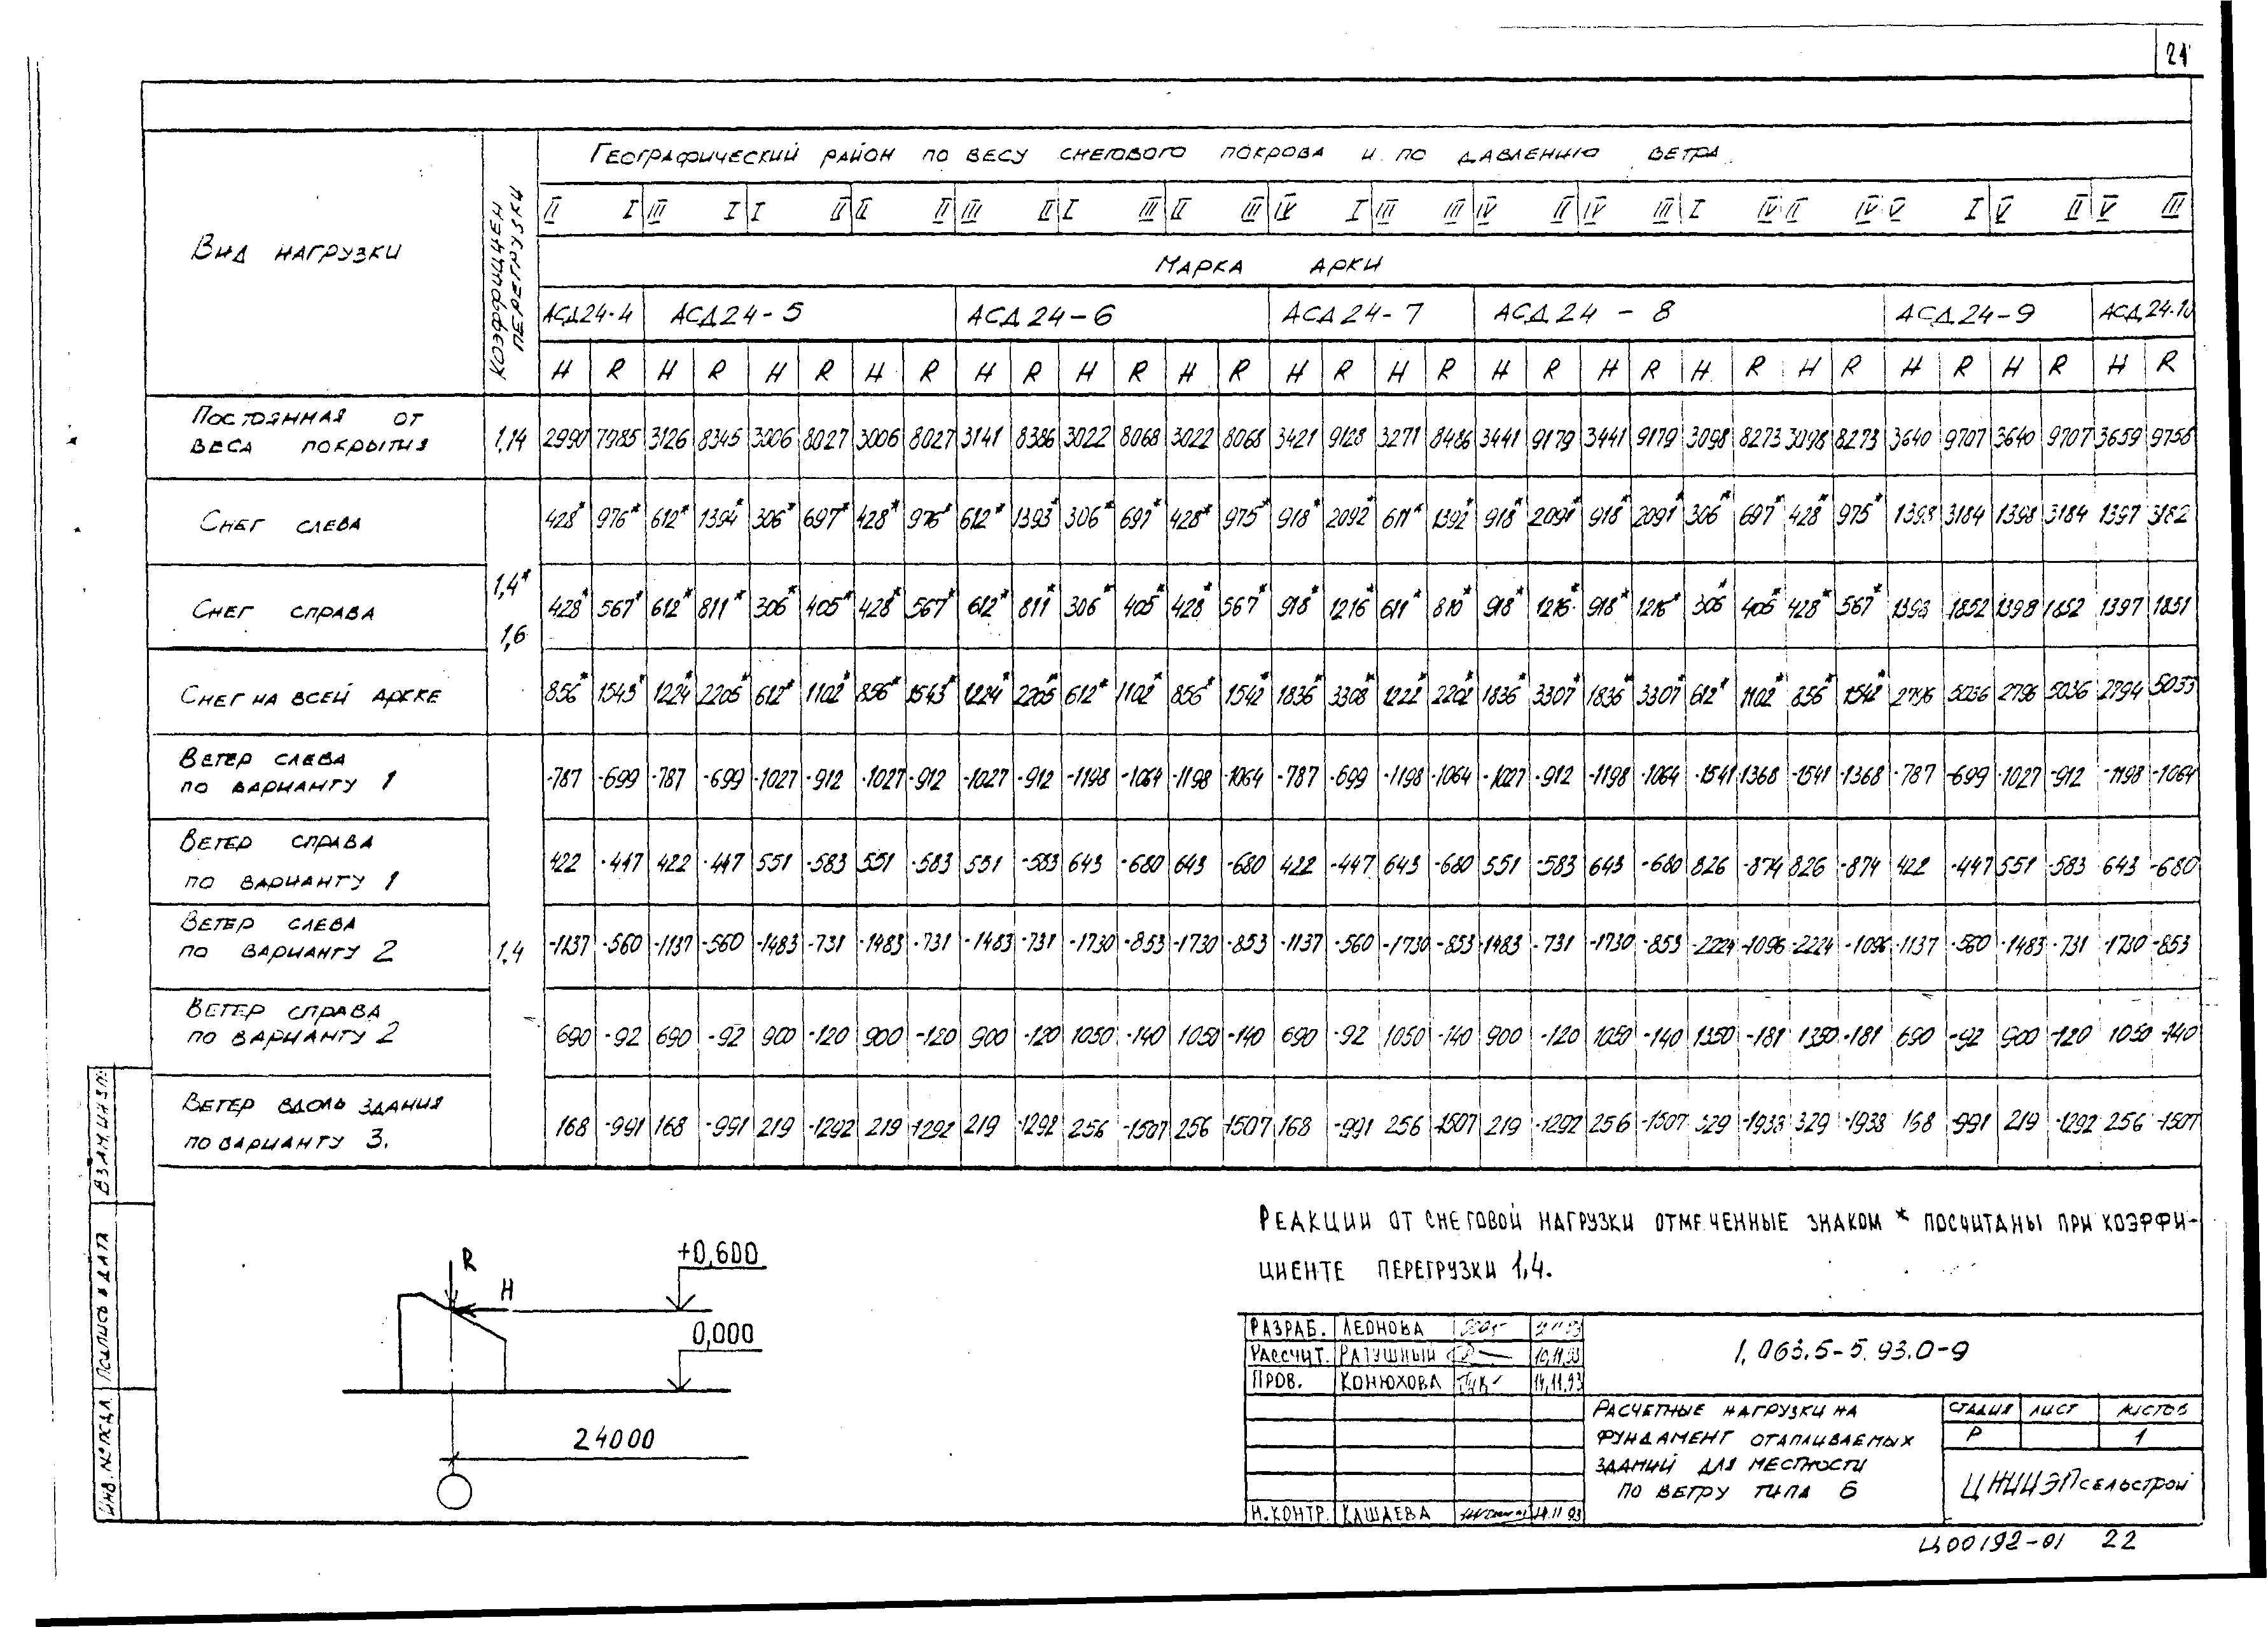 21
Географический район по весу снегового покрова и по давлению ветра.
Вид нагрузки
Коэффициен перегрузки
II I III I I II II II III II I III II III IV I III III IV II IV III I IV II IV V I V II V III
Марка арки
АСД24-4 АСД24-5 АСД24-6 АСД24-7 АСД24-8 АСД24-9 АСД24-10
H R H R H R H R H R H R H R H R H R H R H R H R H R H R H R H R
Постоянная от
веса покрытия 1,14 2990 7985 3126 8345 3006 8027 3006 8027 3141 8386 3022 8068 3022 8068 3421 9128 3271 8486 3441 9179 3441 9179 3098 8273 3098 8273 3640 9707 3640 9707 3659 9756
Снег слева 428* 976* 612* 1394* 306* 697* 428* 976* 612* 1393* 306* 697* 428* 975* 918* 2092* 611* 1392* 918* 2091* 918* 2091* 306* 697* 428* 975* 1398 3184 1398 3184 1397 3182
1,4*
Снег справа 428* 567* 612* 811* 306* 405* 428* 567* 612* 811* 306* 405* 428* 567* 918* 1216* 611* 810* 918* 1216* 918* 1216* 306* 405* 428* 567* 1398 1852 1398 1852 1397 1851
1,6
Снег на всей аркке 856* 1543* 1224* 2205* 612* 1102* 856* 1543* 1224* 2205* 612* 1102* 856* 1542* 1836* 3308* 1222* 2202* 1836* 3307* 1836* 3307* 612* 1102* 856* 1542* 2796 5036 2796 5036 2794 5033
Ветер слева
по варианту 1 -787 -699 -787 -699 -1027 -912 -1027 -912 -1027 -912 -1198 -1064 -1198 -1064 -787 -699 -1198 -1064 -1027 -912 -1198 -1064 -1541 -1368 -1541 -1368 -787 -699 -1027 -912 -1198 -1064
Ветер справа
по варианту 1 422 -447 422 -447 551 -583 551 -583 551 -583 643 -680 643 -680 422 -447 643 -680 551 -583 643 -680 826 -874 826 -874 422 -447 551 -583 643 -680
Ветер слева
по варианту 2 1,4 -1137 -560 -1137 -560 -1483 -731 -1483 -731 -1483 -731 -1730 -853 -1730 -853 -1137 -560 -1730 -853 -1483 -731 -1730 -853 -2224 -1096 -2224 -1096 -1137 -560 -1483 -731 -1730 -853
Ветер справа
по варианту 2 690 -92 690 -92 900 -120 900 -120 900 -120 1050 -140 1050 -140 690 -92 1050 -140 900 -120 1050 -140 1350 -181 1350 -181 690 -92 900 -120 1050 -140
Ветер вдоль здания
по варианту 3. 168 -991 168 -991 219 -1292 219 -1292 219 -1292 256 -1507 256 -1507 168 -991 256 -1507 219 -1292 256 -1507 329 -1938 329 -1938 168 -991 219 -1292 256 -1507
Реакции от снеговой нагрузки отмеченные знаком * посчитаны при коэффи-
циенте перегрузки 1,4.
R
H
+0,600
0,000
24000
Взам.инв.
Подпись и дата
Инв.№подл.
Разраб. Леонова
Рассчит. Ратушный 10.11.93
Пров. Конюхова 14.11.93
Н.контр. Кашаева 14.11.93
1.063.5-5.93.0-9
Расчетные нагрузки на
фундамент отапливаемых
зданий для местности
по ветру типа Б
стадия лист листов
Р 1
ЦНИИЭПсельстрой
Ц00192-01 22